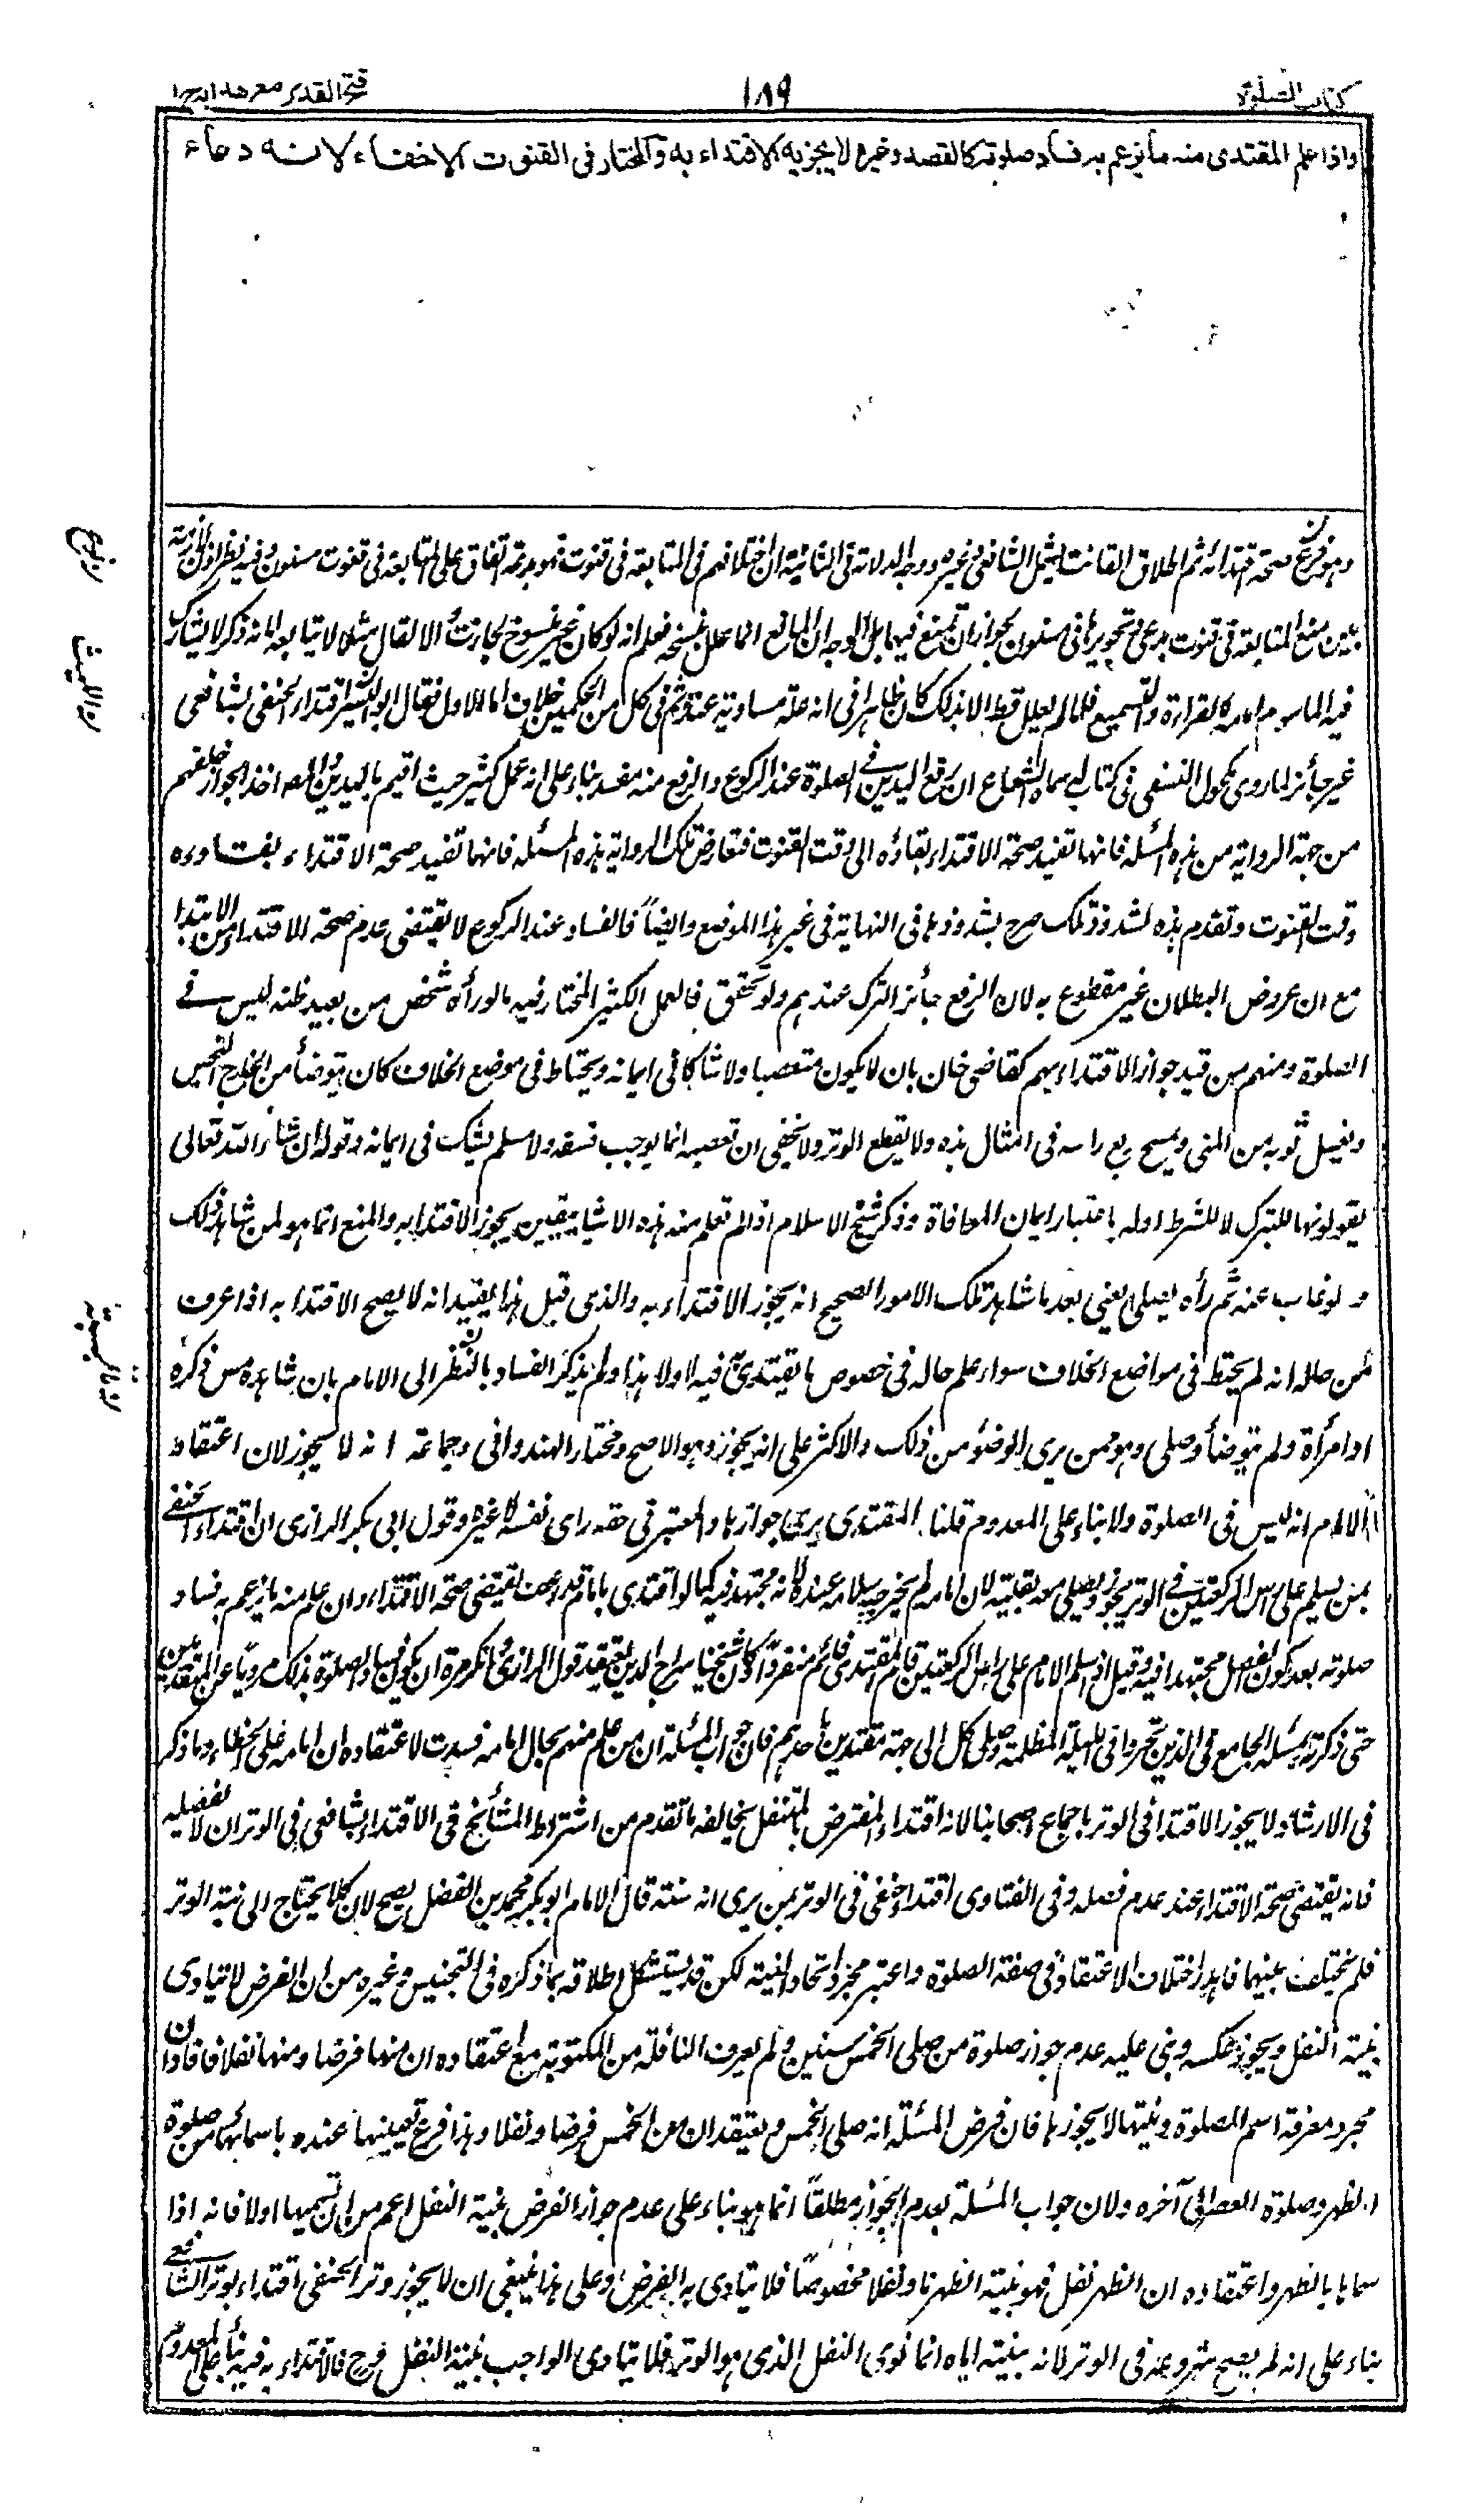 كتاب الصلوة
١٨٩
فتح القدير مع هداية ج١
واذا علم المقتدى منه ما يزعم به فساد صلوته كالفصد وغيره لا يجزيه الاقتداء به والمختار فى القنوت الاخفاء لانه دعاء
وهو فرع صحة اقتدائه ثم اطلاق القانت ليشمل الشافعى وغيره ووجه الدلالة فى الثانية ان اختلافهم فى المتابعة فى قنوت الفجر مع اتفاق على المتابعة فى قنوت مسنون وفيه نظر اذ لا ملازمة
بين منع المتابعة فى قنوت بدعى وتجويزها فى مسنون لجواز ان تمنع فيهما بل الوجه ان المانع انما علل بنسخه فعلم انه لو كان غير منسوخ لجازت الا لقال مثلا لا يتابعه لانه ذكر لا يشارك
فيه الماموم امامه كالقراءة والتسميع فلما لم يعلل قط الا بذلك كان ظاهرا فى انه علة مساوية عنده ثم فى كل من الحكمين خلاف اما الاول فقال ابو اليسر اقتداء الحنفى بشافعى
غير جائز لما روى مكحول النسفى فى كتاب له سماه الشعاع ان رفع اليدين فى الصلوة عند الركوع والرفع منه مفسد بناء على انه عمل كثير حيث اقيم باليدين والمصـ اخذ الجواز خلفهم
من جهة الرواية من هذه المسئلة فانها تفيد صحة الاقتداء وبقاؤه الى وقت القنوت فتعارض تلك الرواية هذه المسئلة فانها تفيد صحة الاقتداء وبقاءه
وقت القنوت وتقدم هذه لشذوذ تلك صرح بشذوذها فى النهاية فى غير هذا الموضع وايضاً فالفساد عند الركوع لا يقتضى عدم صحة الاقتداء من الابتداء
مع ان عروض البطلان غير مقطوع به لان الرفع جائز الترك عندهم ولو تحقق فالعمل الكثير المختار فيه ما لو رأه شخص من بعيد ظنه ليس فى
الصلوة ومنهم من قيد جواز الاقتداء بهم كقاضى خان بان لا يكون متعصبا ولا شاكا فى ايمانه ويحتاط فى موضع الخلاف كان يتوضأ من الخارج النجس
ويغسل ثوبه من المنى ويمسح ربع راسه فى امثال هذه ولا يقطع الوتر ولا يخفى ان تعصبه انما يوجب فسقه ولا مسلم يشك فى ايمانه وقوله ان شاء الله تعالى
يقولونها للتبرك لا للشرط اوله باعتبار ايمان الموافاة وذكر شيخ الاسلام اذا لم تعلم منه هذه الاشياء بيقين يجوز الاقتداء به والمنع انما هو لمن شاهد ذلك
ولو غاب عنه ثم رأه يصلى يعنى بعد ما شاهد تلك الامور الصحيح انه يجوز الاقتداء به والذى قبل هذا يفيد انه لا يصح الاقتداء به اذا عرف
من حاله انه لم يحتط فى مواضع الخلاف سواء علم حاله فى خصوص ما يقتدى فيه او لا هذا ولم يذكر الفساد بالنظر الى الامام بان شاهده مس ذكره
او امرأة ولم يتوضأ وصلى وهو ممن يرى الوضوء من ذلك والاكثر على انه يجوز وهو الاصح ومختار الهندوانى وجماعة انه لا يجوز لان اعتقاد
الامام انه ليس فى الصلوة ولا بناء على المعدوم قلنا المقتدى يرى جوازها والمعتبر فى حقه راى نفسه لا غيره وقول ابى بكر الرازى ان اقتداء الحنفى
بمن يسلم على راس الركعتين فى الوتر يجوز ويصلى معه بقيته لان امامه لم يخرج بسلامه عنده لانه مجتهد فيه كما لو اقتدى بامام قد رعف يقتضى صحة الاقتداء وان علم منه ما يزعم به فساد
صلوته بعد كون الفصل مجتهدا فيه وقيل اذا سلم الامام على راس الركعتين قام المقتدى فاتم منفردا وكان شيخنا سراج الدين يعتقد قول الرازى وانكر مرة ان يكون فساد الصلوة بذلك مرويا عن المتقدمين
حتى ذكرته بمسئلة الجامع فى الذين تحروا فى الليلة المظلمة وصلى كل الى جهة مقتدين باحدهم فان جواب المسئلة ان من علم منهم بحال امامه فسدت لاعتقاده ان امامه على الخطاء وما ذكر
فى الارشاد لا يجوز الاقتداء فى الوتر باجماع اصحابنا لانه اقتداء المفترض بالمتنفل يخالفه ما تقدم من اشتراط المشائخ فى الاقتداء بشافعى فى الوتر ان لا يفصله
فانه يقتضى صحة الاقتداء عند عدم فصله وفى الفتاوى اقتداء حنفى فى الوتر بمن يرى انه سنة قال الامام ابو بكر محمد بن الفضل يصح لان كلا يحتاج الى نية الوتر
فلم تختلف نيتهما فاهدر اختلاف الاعتقاد فى صفة الصلوة واعتبر مجرد اتحاد النية لكن قد يستشكل اطلاقه بما ذكره فى التجنيس وغيره من ان الفرض لا يتادى
بنية النفل ويجوز عكسه وبنى عليه عدم جواز صلوة من صلى الخمس سنين ولم يعرف النافلة من المكتوبة مع اعتقاده ان منها فرضا ومنها نفلا فافاد ان
مجرد معرفة اسم الصلوة ونيتها لا يجوزها فان فرض المسئلة انه صلى الخمس ويعتقد ان من الخمس فرضا ونفلا وهذا فرع تعينها عنده باسمائها من صلوة
الظهر وصلوة العصر الى آخره ولان جواب المسئلة بعدم الجواز مطلقاً انما هو بناء على عدم جواز الفرض بنية النفل اعم من ان تسميها او لا فانه اذا
سماها بالظهر واعتقاده ان الظهر نفل فهو بنية الظهر ناو نفلا مخصوصاً فلا يتادى به الفرض وعلى هذا ينبغى ان لا يجوز وتر الحنفى اقتداء بوتر الشافعى
بناء على انه لم يصح شروعه فى الوتر لانه بنيته اياه انما نوى النفل الذى هو الوتر فلا يتادى الواجب بنية النفل وح فالاقتداء به فيه بناء على المعدوم